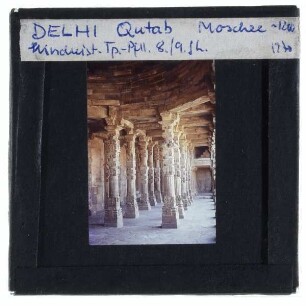 DELHI Qutab Moschee ~1200
hinduist. Tp.-Pfl. 8./9. Jh.